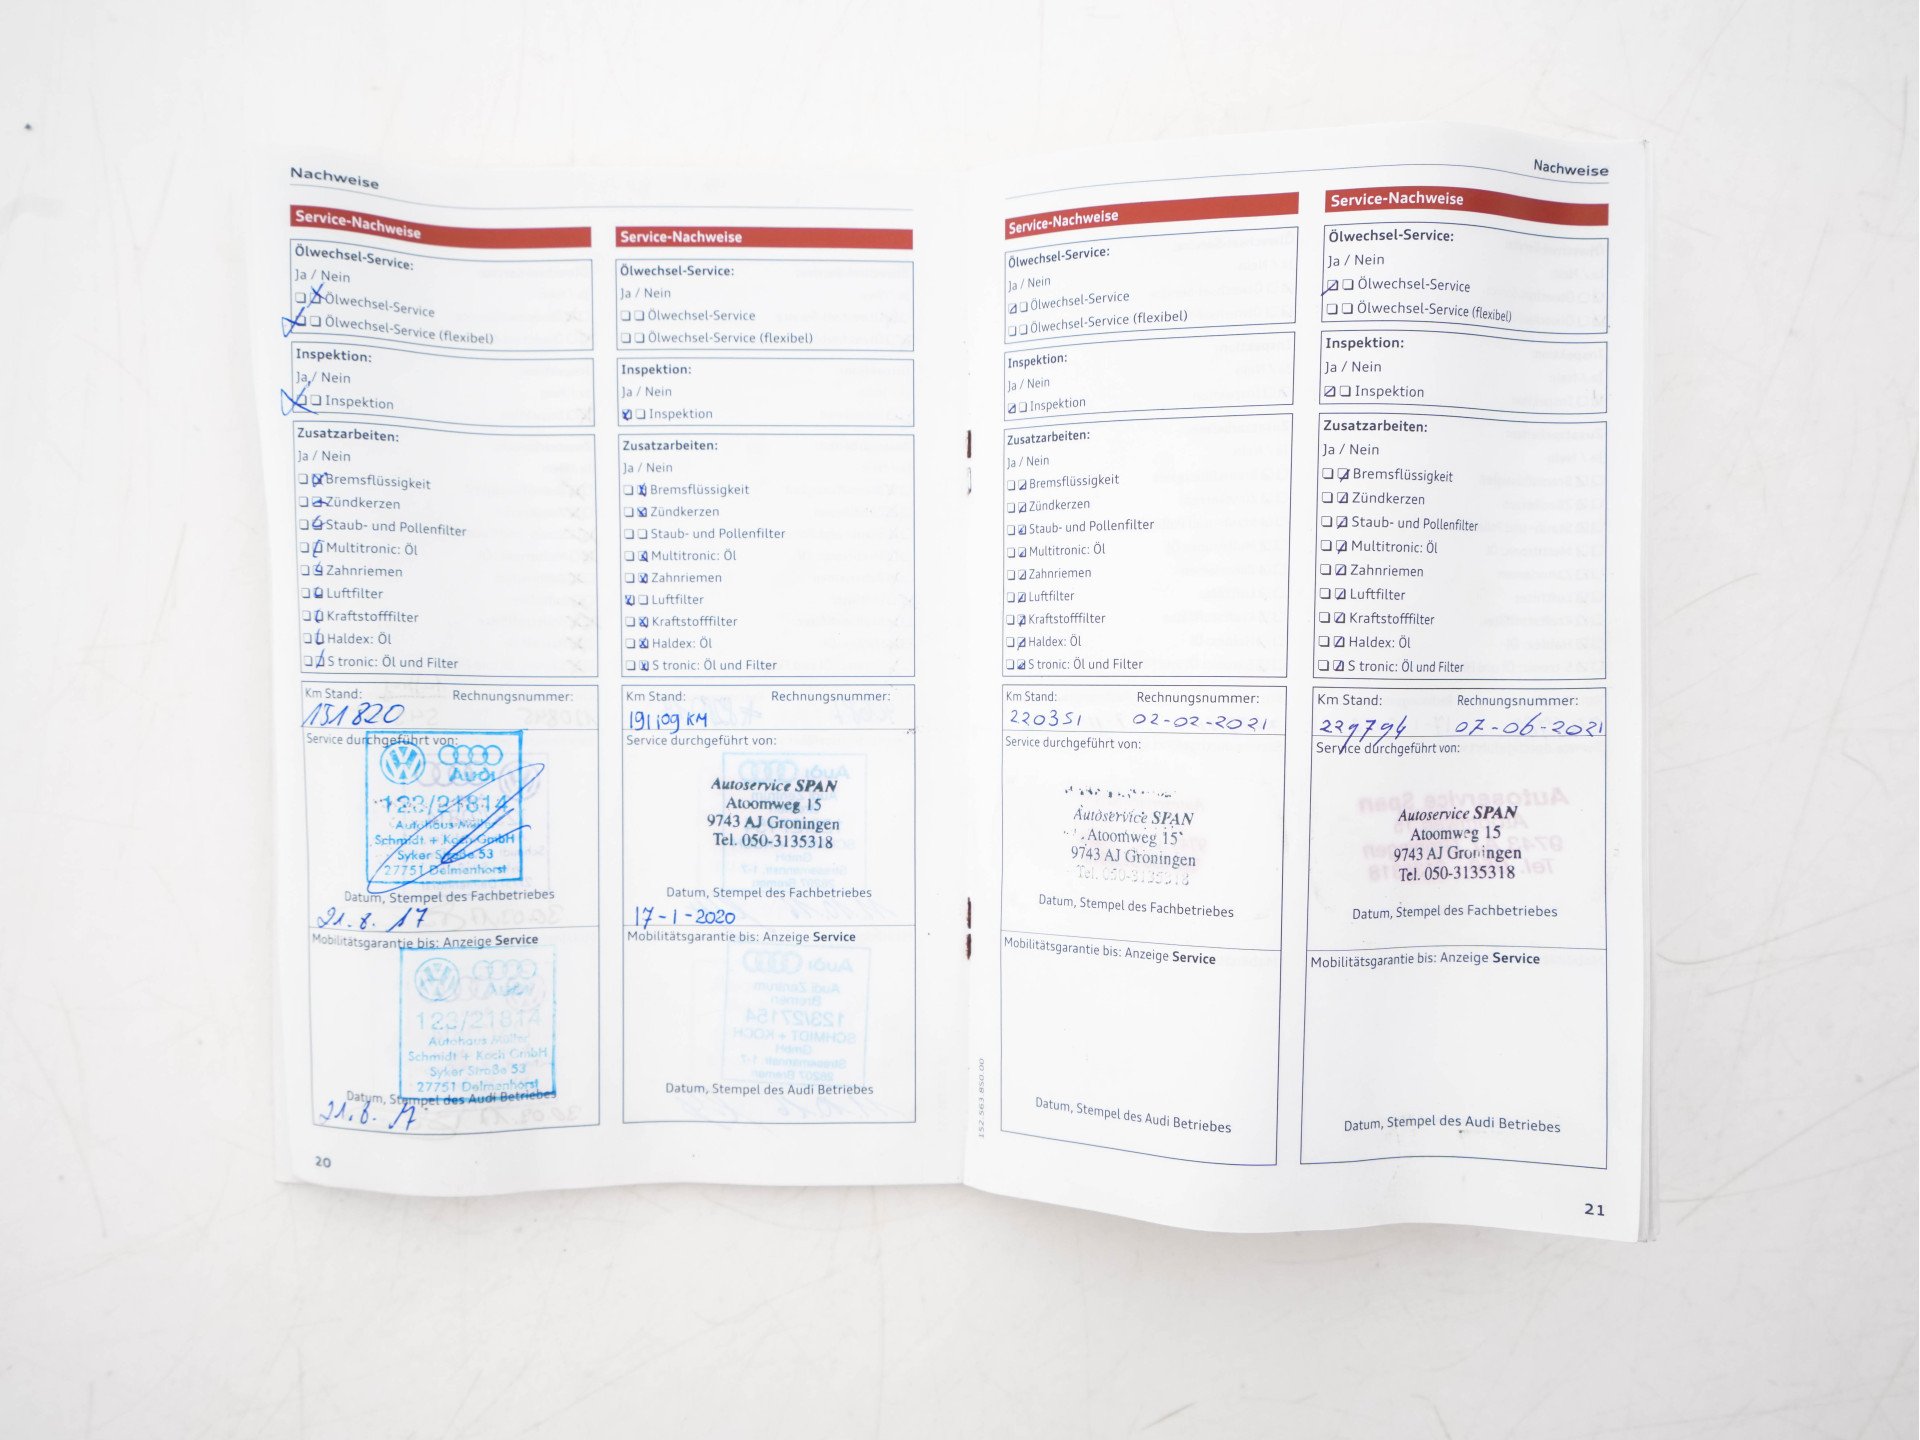 Nachweise
Service-Nachweise
Ölwechsel-Service:
Ja / Nein
Ölwechsel-Service
Ölwechsel-Service (flexibel)
Inspektion:
Ja / Nein
Inspektion
Zusatzarbeiten:
Ja / Nein
Bremsflüssigkeit
Zündkerzen
Staub- und Pollenfilter
Multitronic: Öl
Zahnriemen
Luftfilter
Kraftstofffilter
Haldex: Öl
S tronic: Öl und Filter
Km Stand: Rechnungsnummer:
151820
Service durchgeführt von:
Audi
123/21814
Autohaus Müller
Schmidt + Koch GmbH
Syker Straße 53
27751 Delmenhorst
Datum, Stempel des Fachbetriebes
21.8.17
Mobilitätsgarantie bis: Anzeige Service
Audi
123/21814
Autohaus Müller
Schmidt + Koch GmbH
Syker Straße 53
27751 Delmenhorst
Datum, Stempel des Audi Betriebes
21.8.17
20
Service-Nachweise
Ölwechsel-Service:
Ja / Nein
Ölwechsel-Service
Ölwechsel-Service (flexibel)
Inspektion:
Ja / Nein
Inspektion
Zusatzarbeiten:
Ja / Nein
Bremsflüssigkeit
Zündkerzen
Staub- und Pollenfilter
Multitronic: Öl
Zahnriemen
Luftfilter
Kraftstofffilter
Haldex: Öl
S tronic: Öl und Filter
Km Stand: Rechnungsnummer:
191109 KM
Service durchgeführt von:
Autoservice SPAN
Atoomweg 15
9743 AJ Groningen
Tel. 050-3135318
Datum, Stempel des Fachbetriebes
17-1-2020
Mobilitätsgarantie bis: Anzeige Service
Datum, Stempel des Audi Betriebes
Service-Nachweise
Ölwechsel-Service:
Ja / Nein
Ölwechsel-Service
Ölwechsel-Service (flexibel)
Inspektion:
Ja / Nein
Inspektion
Zusatzarbeiten:
Ja / Nein
Bremsflüssigkeit
Zündkerzen
Staub- und Pollenfilter
Multitronic: Öl
Zahnriemen
Luftfilter
Kraftstofffilter
Haldex: Öl
S tronic: Öl und Filter
Km Stand: Rechnungsnummer:
220351 02-02-2021
Service durchgeführt von:
Autoservice SPAN
Atoomweg 15
9743 AJ Groningen
Tel. 050-3135318
Datum, Stempel des Fachbetriebes
Mobilitätsgarantie bis: Anzeige Service
Datum, Stempel des Audi Betriebes
152.563.850.00
Nachweise
Service-Nachweise
Ölwechsel-Service:
Ja / Nein
Ölwechsel-Service
Ölwechsel-Service (flexibel)
Inspektion:
Ja / Nein
Inspektion
Zusatzarbeiten:
Ja / Nein
Bremsflüssigkeit
Zündkerzen
Staub- und Pollenfilter
Multitronic: Öl
Zahnriemen
Luftfilter
Kraftstofffilter
Haldex: Öl
S tronic: Öl und Filter
Km Stand: Rechnungsnummer:
229794 07-06-2021
Service durchgeführt von:
Autoservice SPAN
Atoomweg 15
9743 AJ Groningen
Tel. 050-3135318
Datum, Stempel des Fachbetriebes
Mobilitätsgarantie bis: Anzeige Service
Datum, Stempel des Audi Betriebes
21